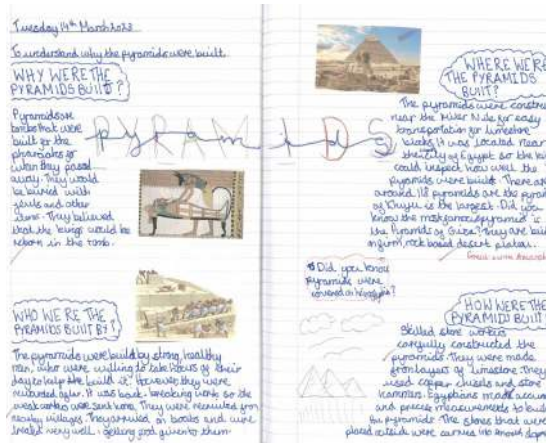 Tuesday 14th March 2023
To understand why the pyramids were built.
WHY WERE THE
PYRAMIDS BUILT?
Pyramids are
tombs that were
built for the
pharaohs for
when they passed
away. They would
be buried with
jewels and other
items. They believed
that the kings would be
reborn in the tomb.
PYRAMIDS
WHO WERE THE
PYRAMIDS BUILT BY?
The pyramids were build by strong, healthy
men, who were willing to take hours of their
day to help the build it. However, they were
rewarded after. It was back-breaking work so the
weak were sent home. They were recruited from
nearby villages. They arrived on boats and were
treated very well - getting food given to them.
WHERE WERE
THE PYRAMIDS
BUILT?
The pyramids were constru
near the River Nile for easy
transportation for limestone
blocks. It was located near
the city of Egypt so the ki
could inspect how well the
pyramids were built. There are
around 118 pyramids are the pyram
of Khufu is the largest. Did you
know the most famous pyramid is
the Pyramids of Giza? They are buil
on firm, rock based desert plateau.
Did you know
pyramids were
covered in
HOW WERE THE
PYRAMID BUILT
Skilled stone workers
carefully constructed the
pyramids. They were made
from layers of limestone. They
used copper chisels and stone
hammers. Egyptians made accura
and precise measurements to build
the pyramid. The stones that were
placed outside were carved into smooth